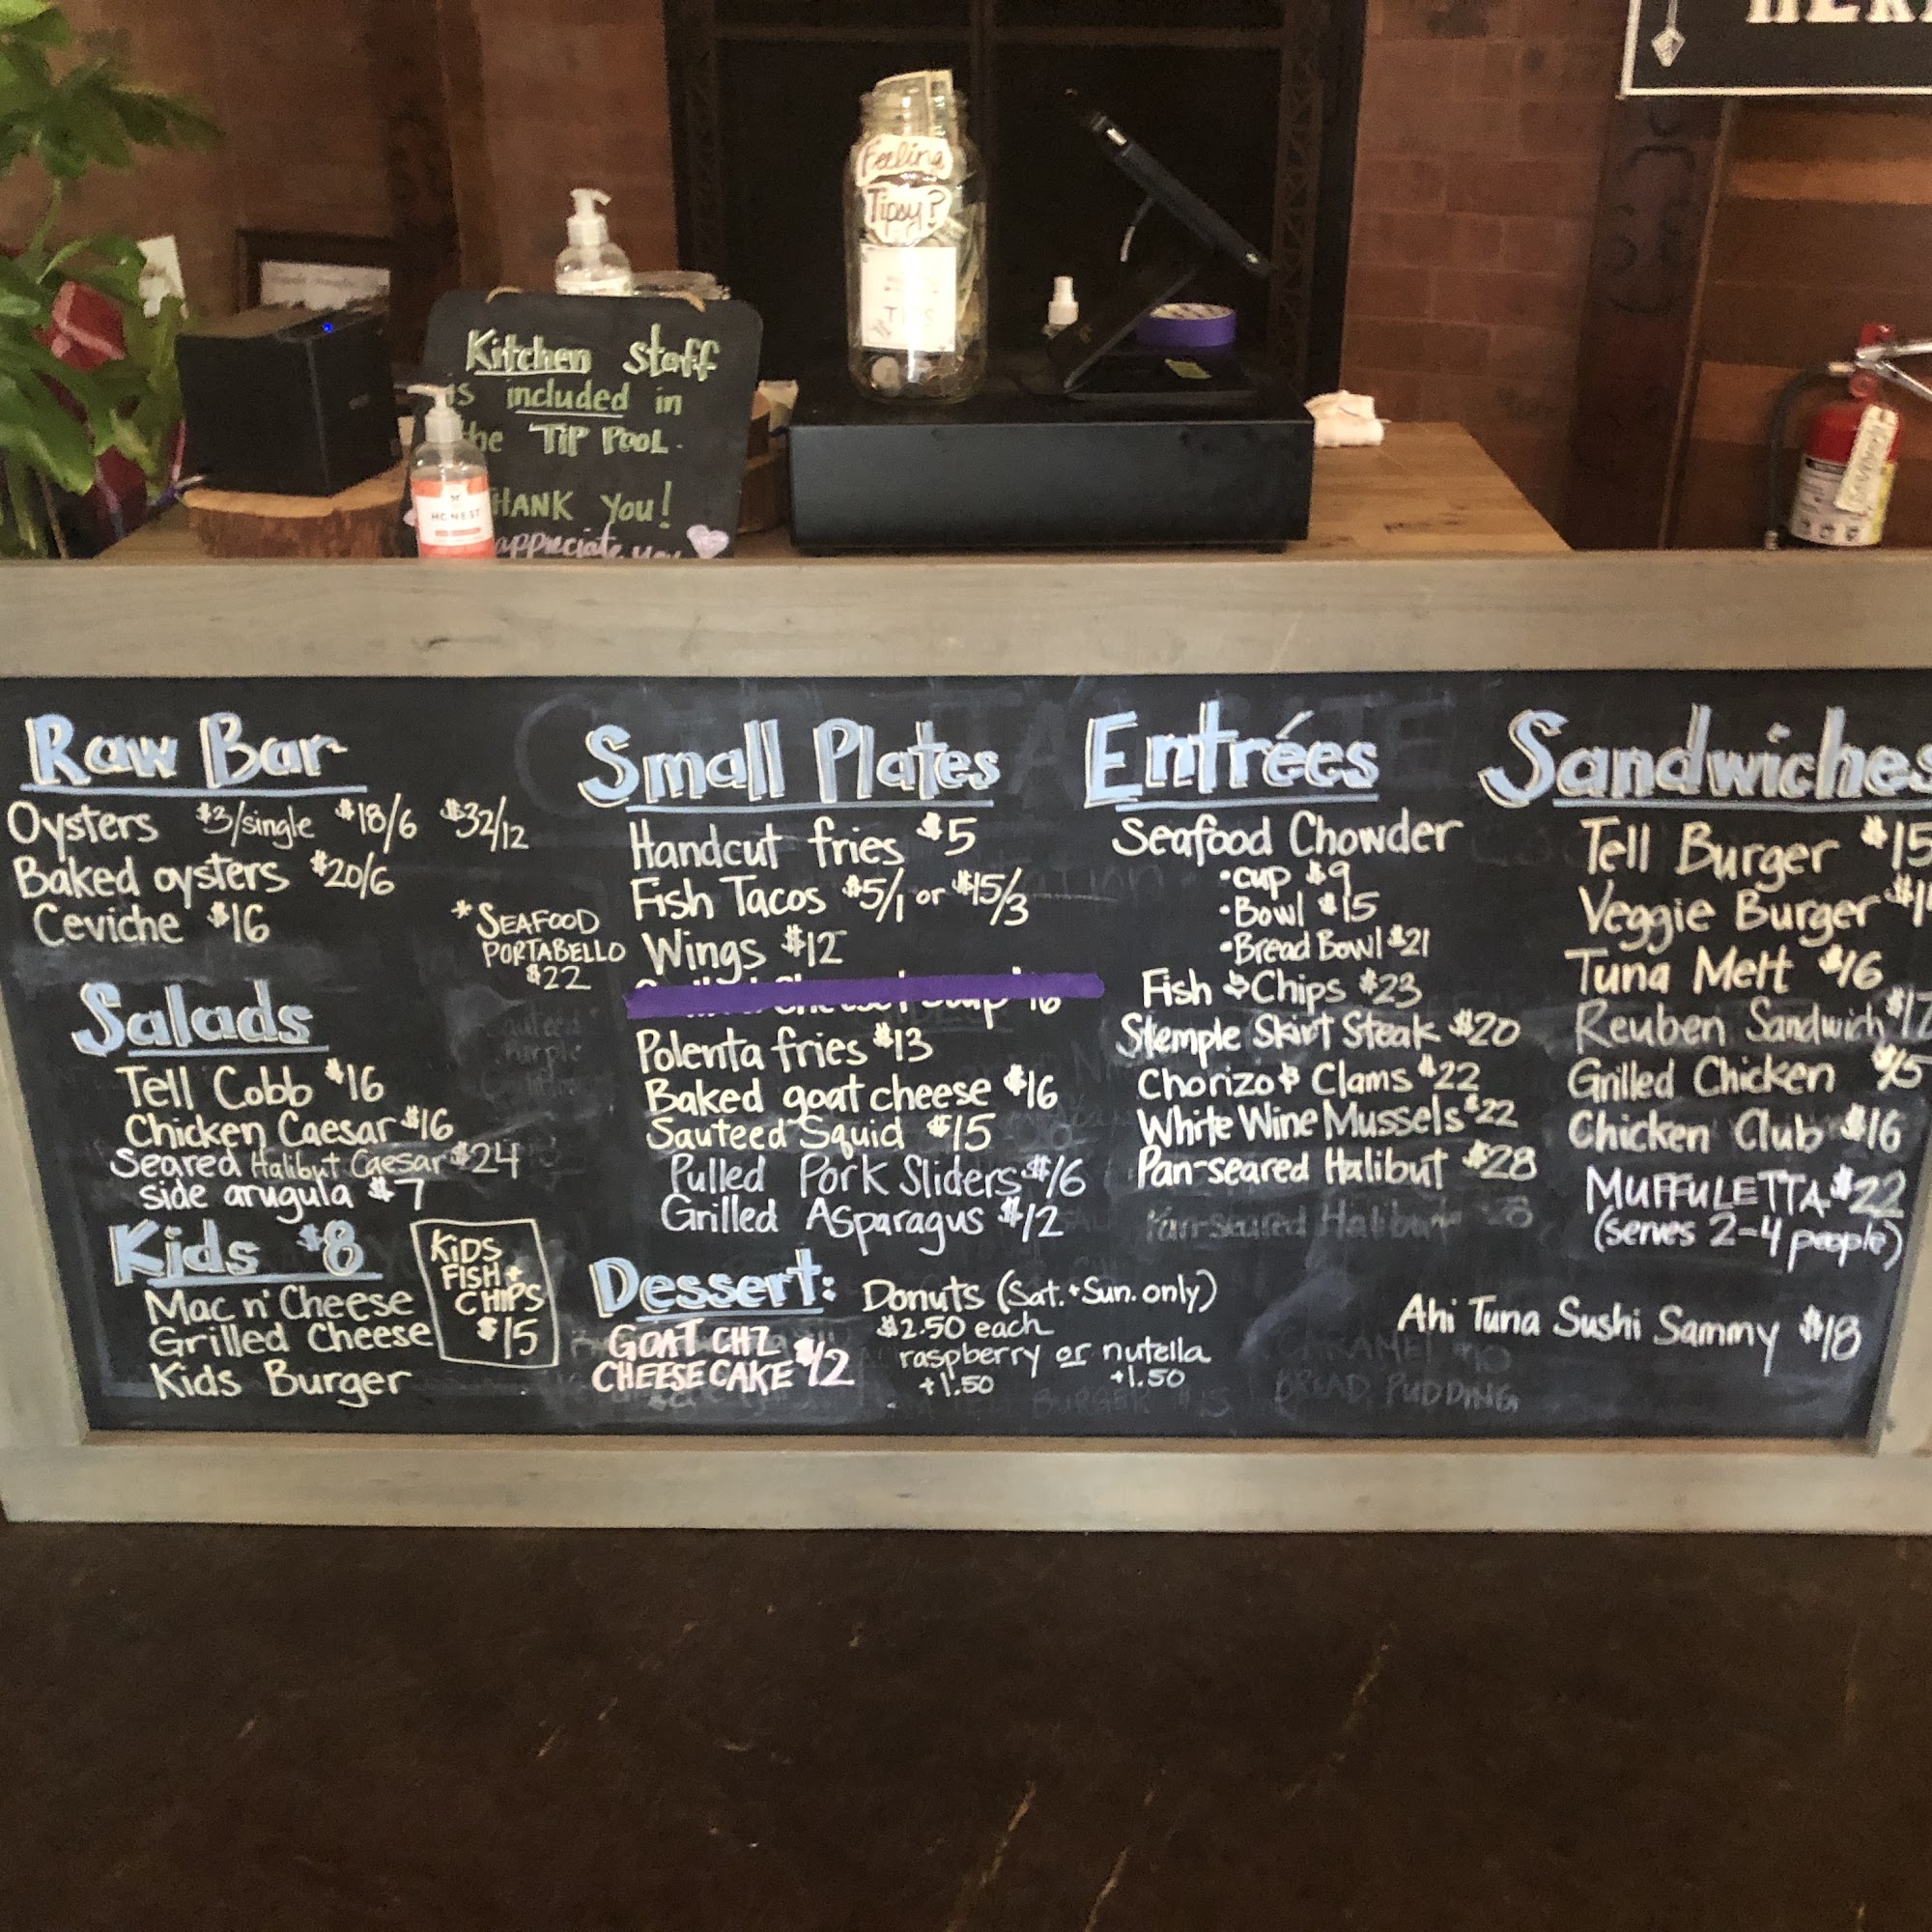 Feeling
Tipsy?
TIPS
Kitchen Staff
is included in
the TIP POOL.
THANK You!
appreciate you
HONEST
Raw Bar
Oysters $3/single $18/6 $32/12
Baked oysters $20/6
Ceviche $16
*SEAFOOD
PORTABELLO
$22
Salads
Tell Cobb $16
Chicken Caesar $16
Seared Halibut Caesar $24
side arugula $7
Kids $8
Mac n' Cheese
Grilled Cheese
Kids Burger
KIDS
FISH +
CHIPS
$15
Small Plates
Handcut fries $5
Fish Tacos $5/1 or $15/3
Wings $12
Polenta fries $13
Baked goat cheese $16
Sauteed Squid $15
Pulled Pork Sliders $16
Grilled Asparagus $12
Dessert:
GOAT CHZ
CHEESECAKE $12
Donuts (Sat. + Sun. only)
$2.50 each
raspberry or nutella
+1.50 +1.50
Entrées
Seafood Chowder
•cup $9
•Bowl $15
•Bread Bowl $21
Fish & Chips $23
Stemple Skirt Steak $20
Chorizo & Clams $22
White Wine Mussels $22
Pan-seared Halibut $28
Pan-seared Halibut 28
BREAD PUDDING
Sandwiches
Tell Burger $15
Veggie Burger
Tuna Melt $16
Reuben Sandwich
Grilled Chicken $15
Chicken Club $16
MUFFULETTA $22
(serves 2-4 people)
Ahi Tuna Sushi Sammy $18